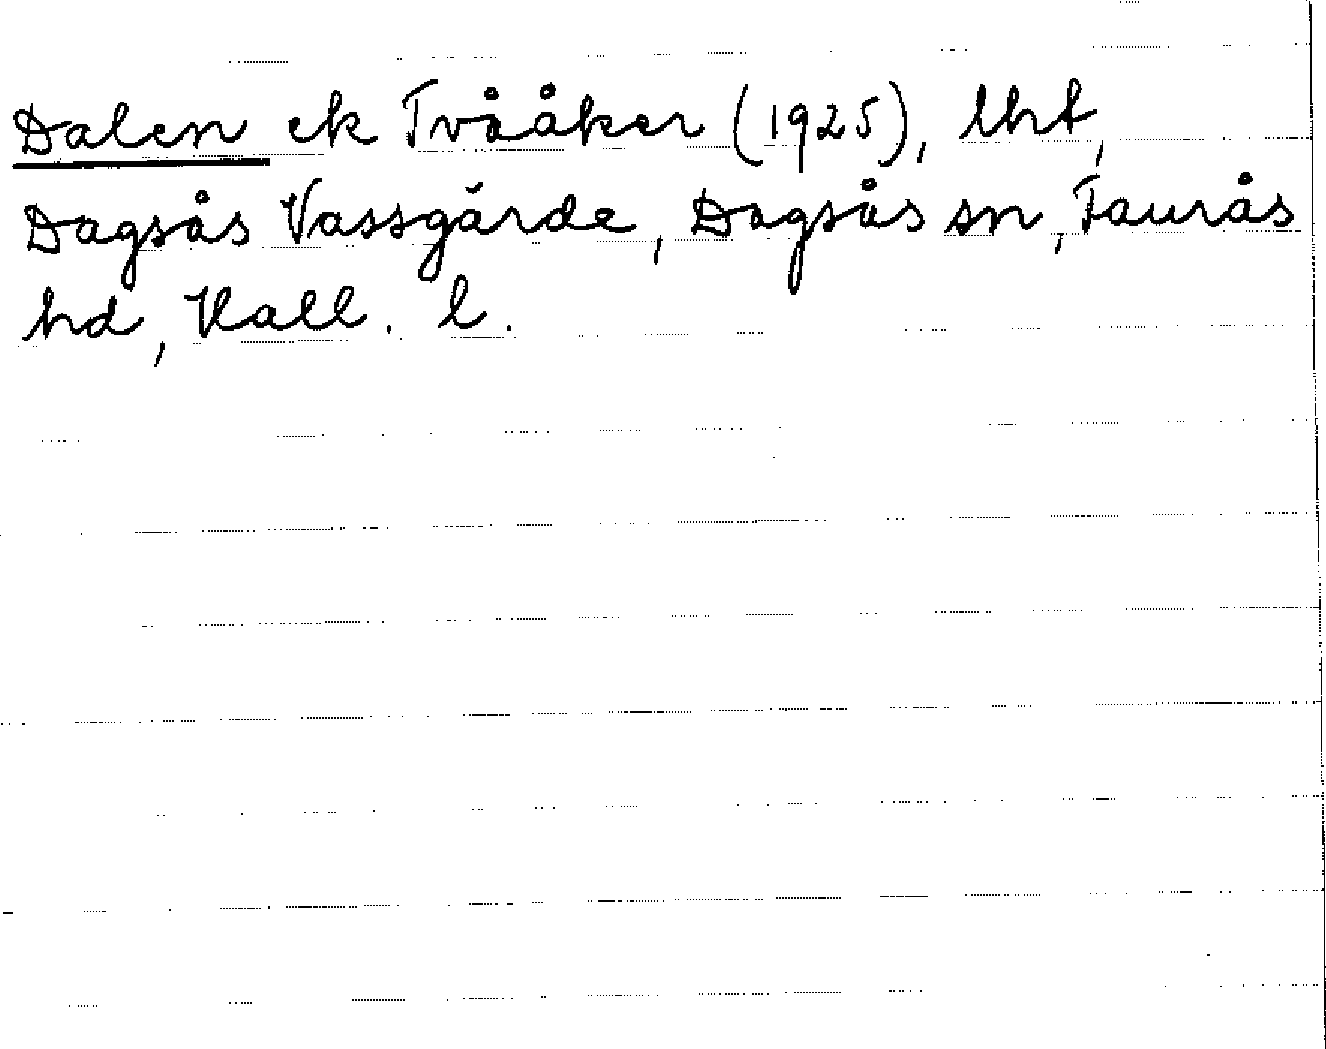 Dalen ek Tvååker (1925), lht,
Dagsås Vassgärde, Dagsås sn, Faurås
hd, Hall. l.